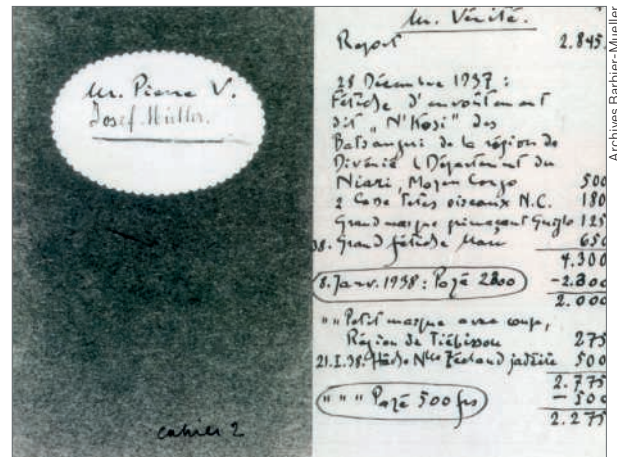 Mr. Pierre V.
Josef Müller.
cahier 2
Mr. Vérité.
Report 2.845.
28 Décembre 1937 :
Fétiche d'envoûtement
dit "N'Kosi" des
Batsangui de la région de
Divénié (Département du
Niari, Moyen Congo 500
2 Casse têtes oiseaux N.C. 180
Grand masque grimaçant 125
38. Grand fétiche 650
4.300
8. Janv. 1938 : Payé 2300 -2.300
2.000
" " Petit masque avec coupe,
Région de Tiébissou 275
21.I.38. Hache Nlle Zéeland jadéite 500
2.775
" " " Payé 500 frs - 500
2.275
Archives Barbier-Mueller